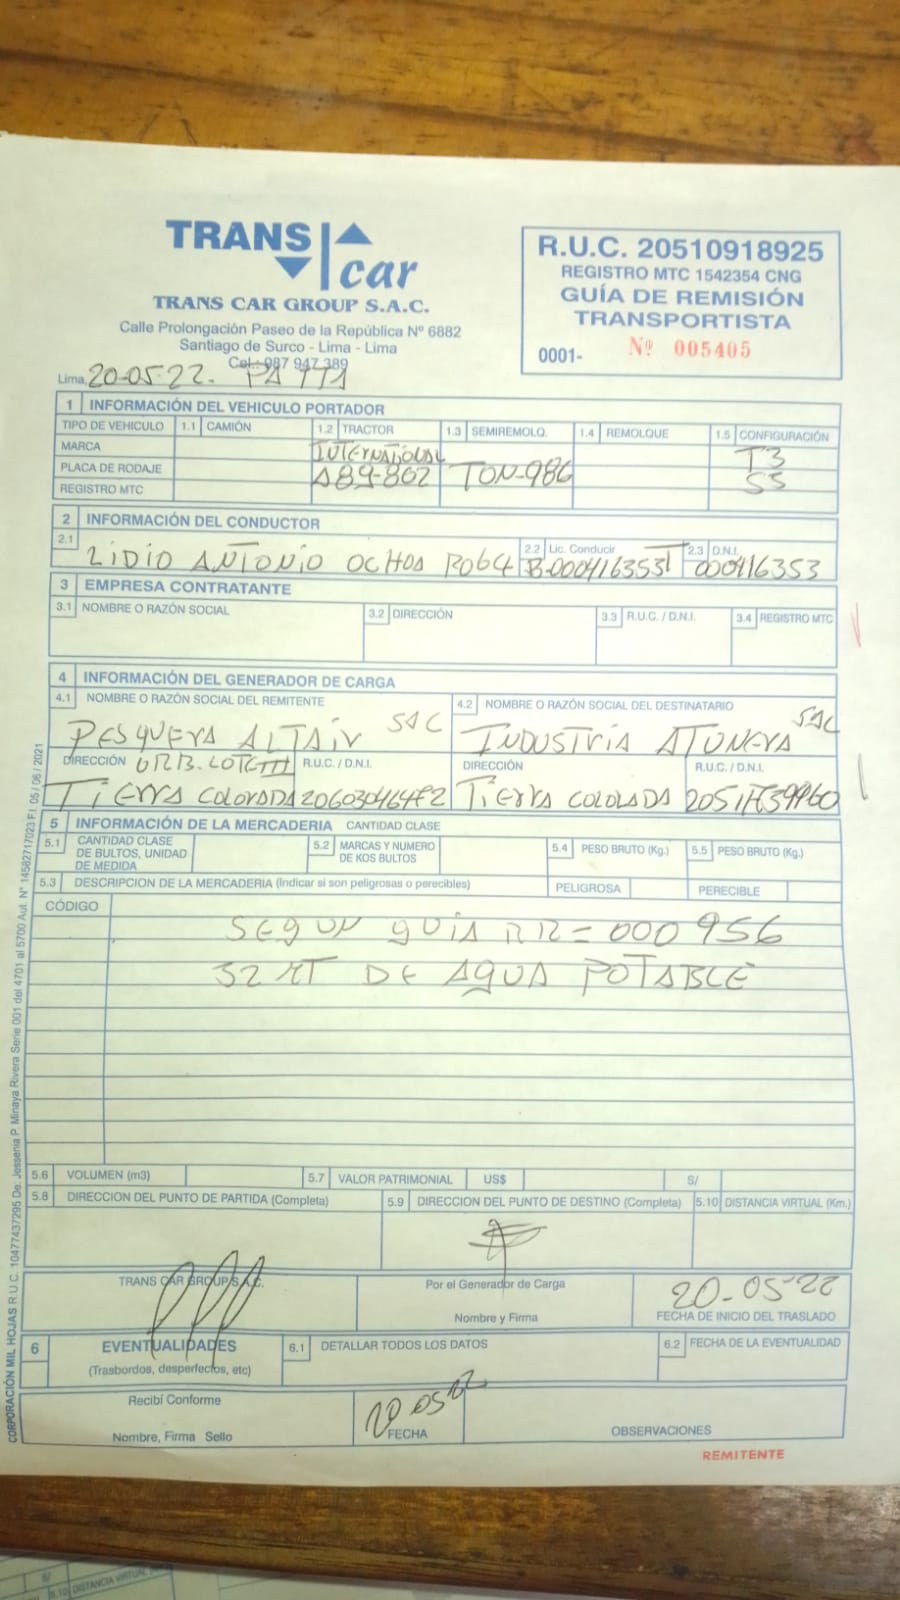 TRANS car
TRANS CAR GROUP S.A.C.
Calle Prolongación Paseo de la República Nº 6882
Santiago de Surco - Lima - Lima
Cel.: 987 947 389
R.U.C. 20510918925
REGISTRO MTC 1542354 CNG
GUÍA DE REMISIÓN
TRANSPORTISTA
0001- Nº 005405
Lima, 20-05-22.
1 INFORMACIÓN DEL VEHICULO PORTADOR
TIPO DE VEHICULO 1.1 CAMIÓN 1.2 TRACTOR 1.3 SEMIREMOLQ. 1.4 REMOLQUE 1.5 CONFIGURACIÓN
MARCA INTERNATIONAL T3
PLACA DE RODAJE A89-802 TON-986 S3
REGISTRO MTC
2 INFORMACIÓN DEL CONDUCTOR
2.1 2.2 Lic. Conducir 2.3 D.N.I.
LIDIO ANTONIO OCHOA 000416353
3 EMPRESA CONTRATANTE
3.1 NOMBRE O RAZÓN SOCIAL 3.2 DIRECCIÓN 3.3 R.U.C. / D.N.I. 3.4 REGISTRO MTC
4 INFORMACIÓN DEL GENERADOR DE CARGA
4.1 NOMBRE O RAZÓN SOCIAL DEL REMITENTE 4.2 NOMBRE O RAZÓN SOCIAL DEL DESTINATARIO
PESQUERA ALTAIR SAC INDUSTRIA ATUNERA SAC
DIRECCIÓN URB. R.U.C. / D.N.I. DIRECCIÓN R.U.C. / D.N.I.
TIERRA COLORADA TIERRA COLOLADA
5 INFORMACIÓN DE LA MERCADERIA CANTIDAD CLASE
5.1 CANTIDAD CLASE DE BULTOS, UNIDAD DE MEDIDA 5.2 MARCAS Y NUMERO DE KOS BULTOS 5.4 PESO BRUTO (Kg.) 5.5 PESO BRUTO (Kg.)
5.3 DESCRIPCION DE LA MERCADERIA (Indicar si son peligrosas o perecibles) PELIGROSA PERECIBLE
CÓDIGO
SEGUN GUIA RR= 000956
32 MT DE AGUA POTABLE
5.6 VOLUMEN (m3) 5.7 VALOR PATRIMONIAL US$ S/
5.8 DIRECCION DEL PUNTO DE PARTIDA (Completa) 5.9 DIRECCION DEL PUNTO DE DESTINO (Completa) 5.10 DISTANCIA VIRTUAL (Km.)
TRANS CAR GROUP S.A.C. Por el Generador de Carga 20-05-22
Nombre y Firma FECHA DE INICIO DEL TRASLADO
6 EVENTUALIDADES 6.1 DETALLAR TODOS LOS DATOS 6.2 FECHA DE LA EVENTUALIDAD
(Trasbordos, desperfectos, etc)
Recibí Conforme 20 05 22
Nombre, Firma Sello FECHA OBSERVACIONES
REMITENTE
CORPORACIÓN MIL HOJAS R.U.C. 10477437295 De: Jessenia P. Minaya Rivera Serie 001 del 4701 al 5700 Aut. Nº 14582717023 F.I. 05 / 06 / 2021
S/
5.10 DISTANCIA VIRTUAL